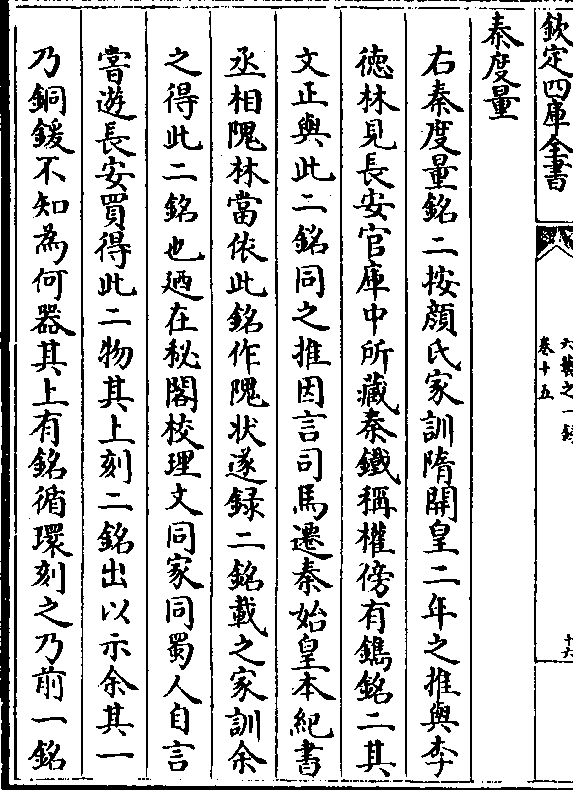 欽定四庫全書
六藝之一録
卷十五
十六
秦度量
右秦度量銘二按顔氏家訓隋開皇二年之推與李
徳林見長安官庫中所藏秦鐵稱權傍有鐫銘二其
文正與此二銘同之推因言司馬遷秦始皇本紀書
丞相隗林當依此銘作隗状遂録二銘載之家訓余
之得此二銘也廼在秘閣校理文同家同蜀人自言
嘗遊長安買得此二物其上刻二銘出以示余其一
乃銅鍰不知為何器其上有銘循環刻之乃前一銘